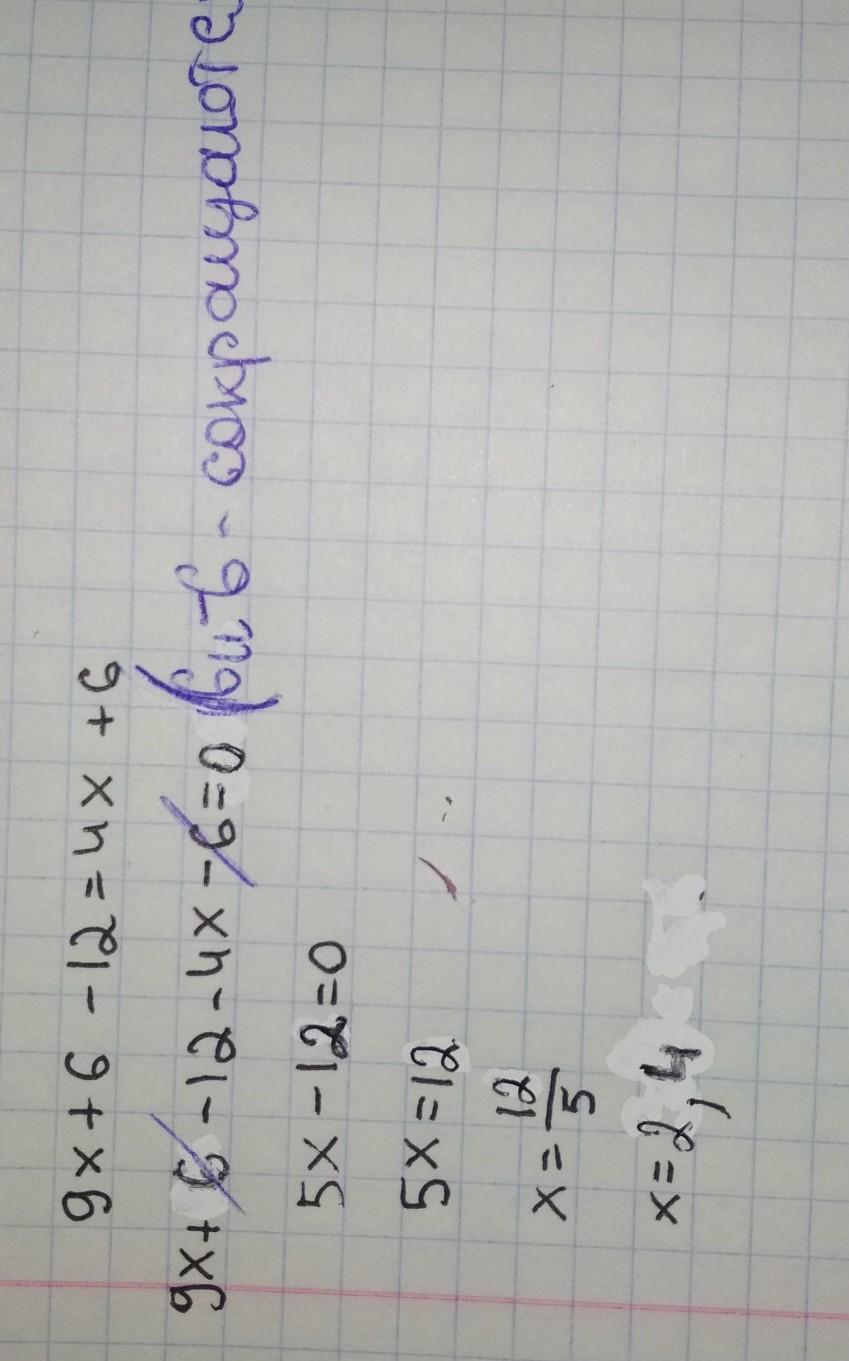 9x+6-12=4x+6
9x+6-12-4x-6=0 (6 и 6 - сокращаются
5x-12=0
5x=12
x=12/5
x=2,4